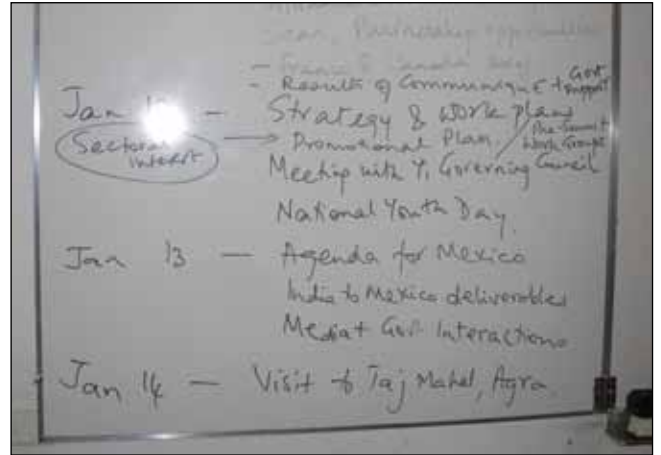 Scan, Partnership opportunities
- France & Canada
- Results of Communique + Govt Support
Jan 1 - Strategy & Work Plans
Sectoral interest → Promotional Plan Pre-Summit Work Groups
Meeting with Yi Governing Council
National Youth Day
Jan 13 - Agenda for Mexico
India to Mexico deliverables
Media + Gov Interactions
Jan 14 - Visit to Taj Mahal, Agra